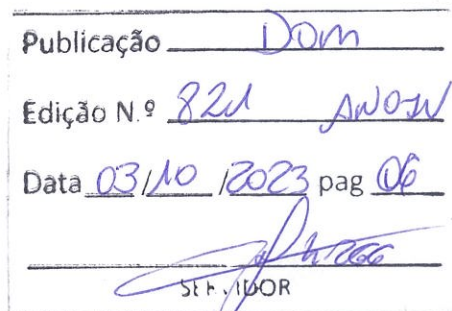 Publicação DOM
Edição N.º 821 ANO IV
Data 03/10/2023 pag 06
SERVIDOR